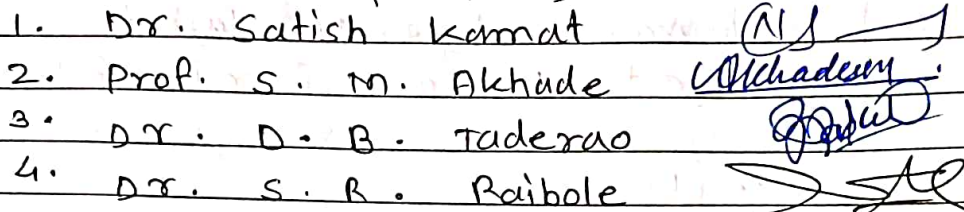 1. Dr. Satish Kamat
2. Prof. S. M. Akhade
3. Dr. D. B. Taderao
4. Dr. S. R. Raibole